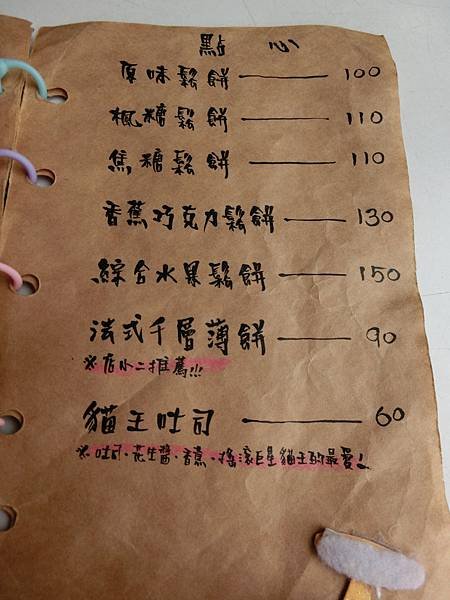 點心
原味鬆餅 100
楓糖鬆餅 110
焦糖鬆餅 110
香蕉巧克力鬆餅 130
綜合水果鬆餅 150
法式千層薄餅 90
※店小二推薦!!!
貓王吐司 60
※吐司、花生醬、香蕉、搖滾巨星貓王的最愛!